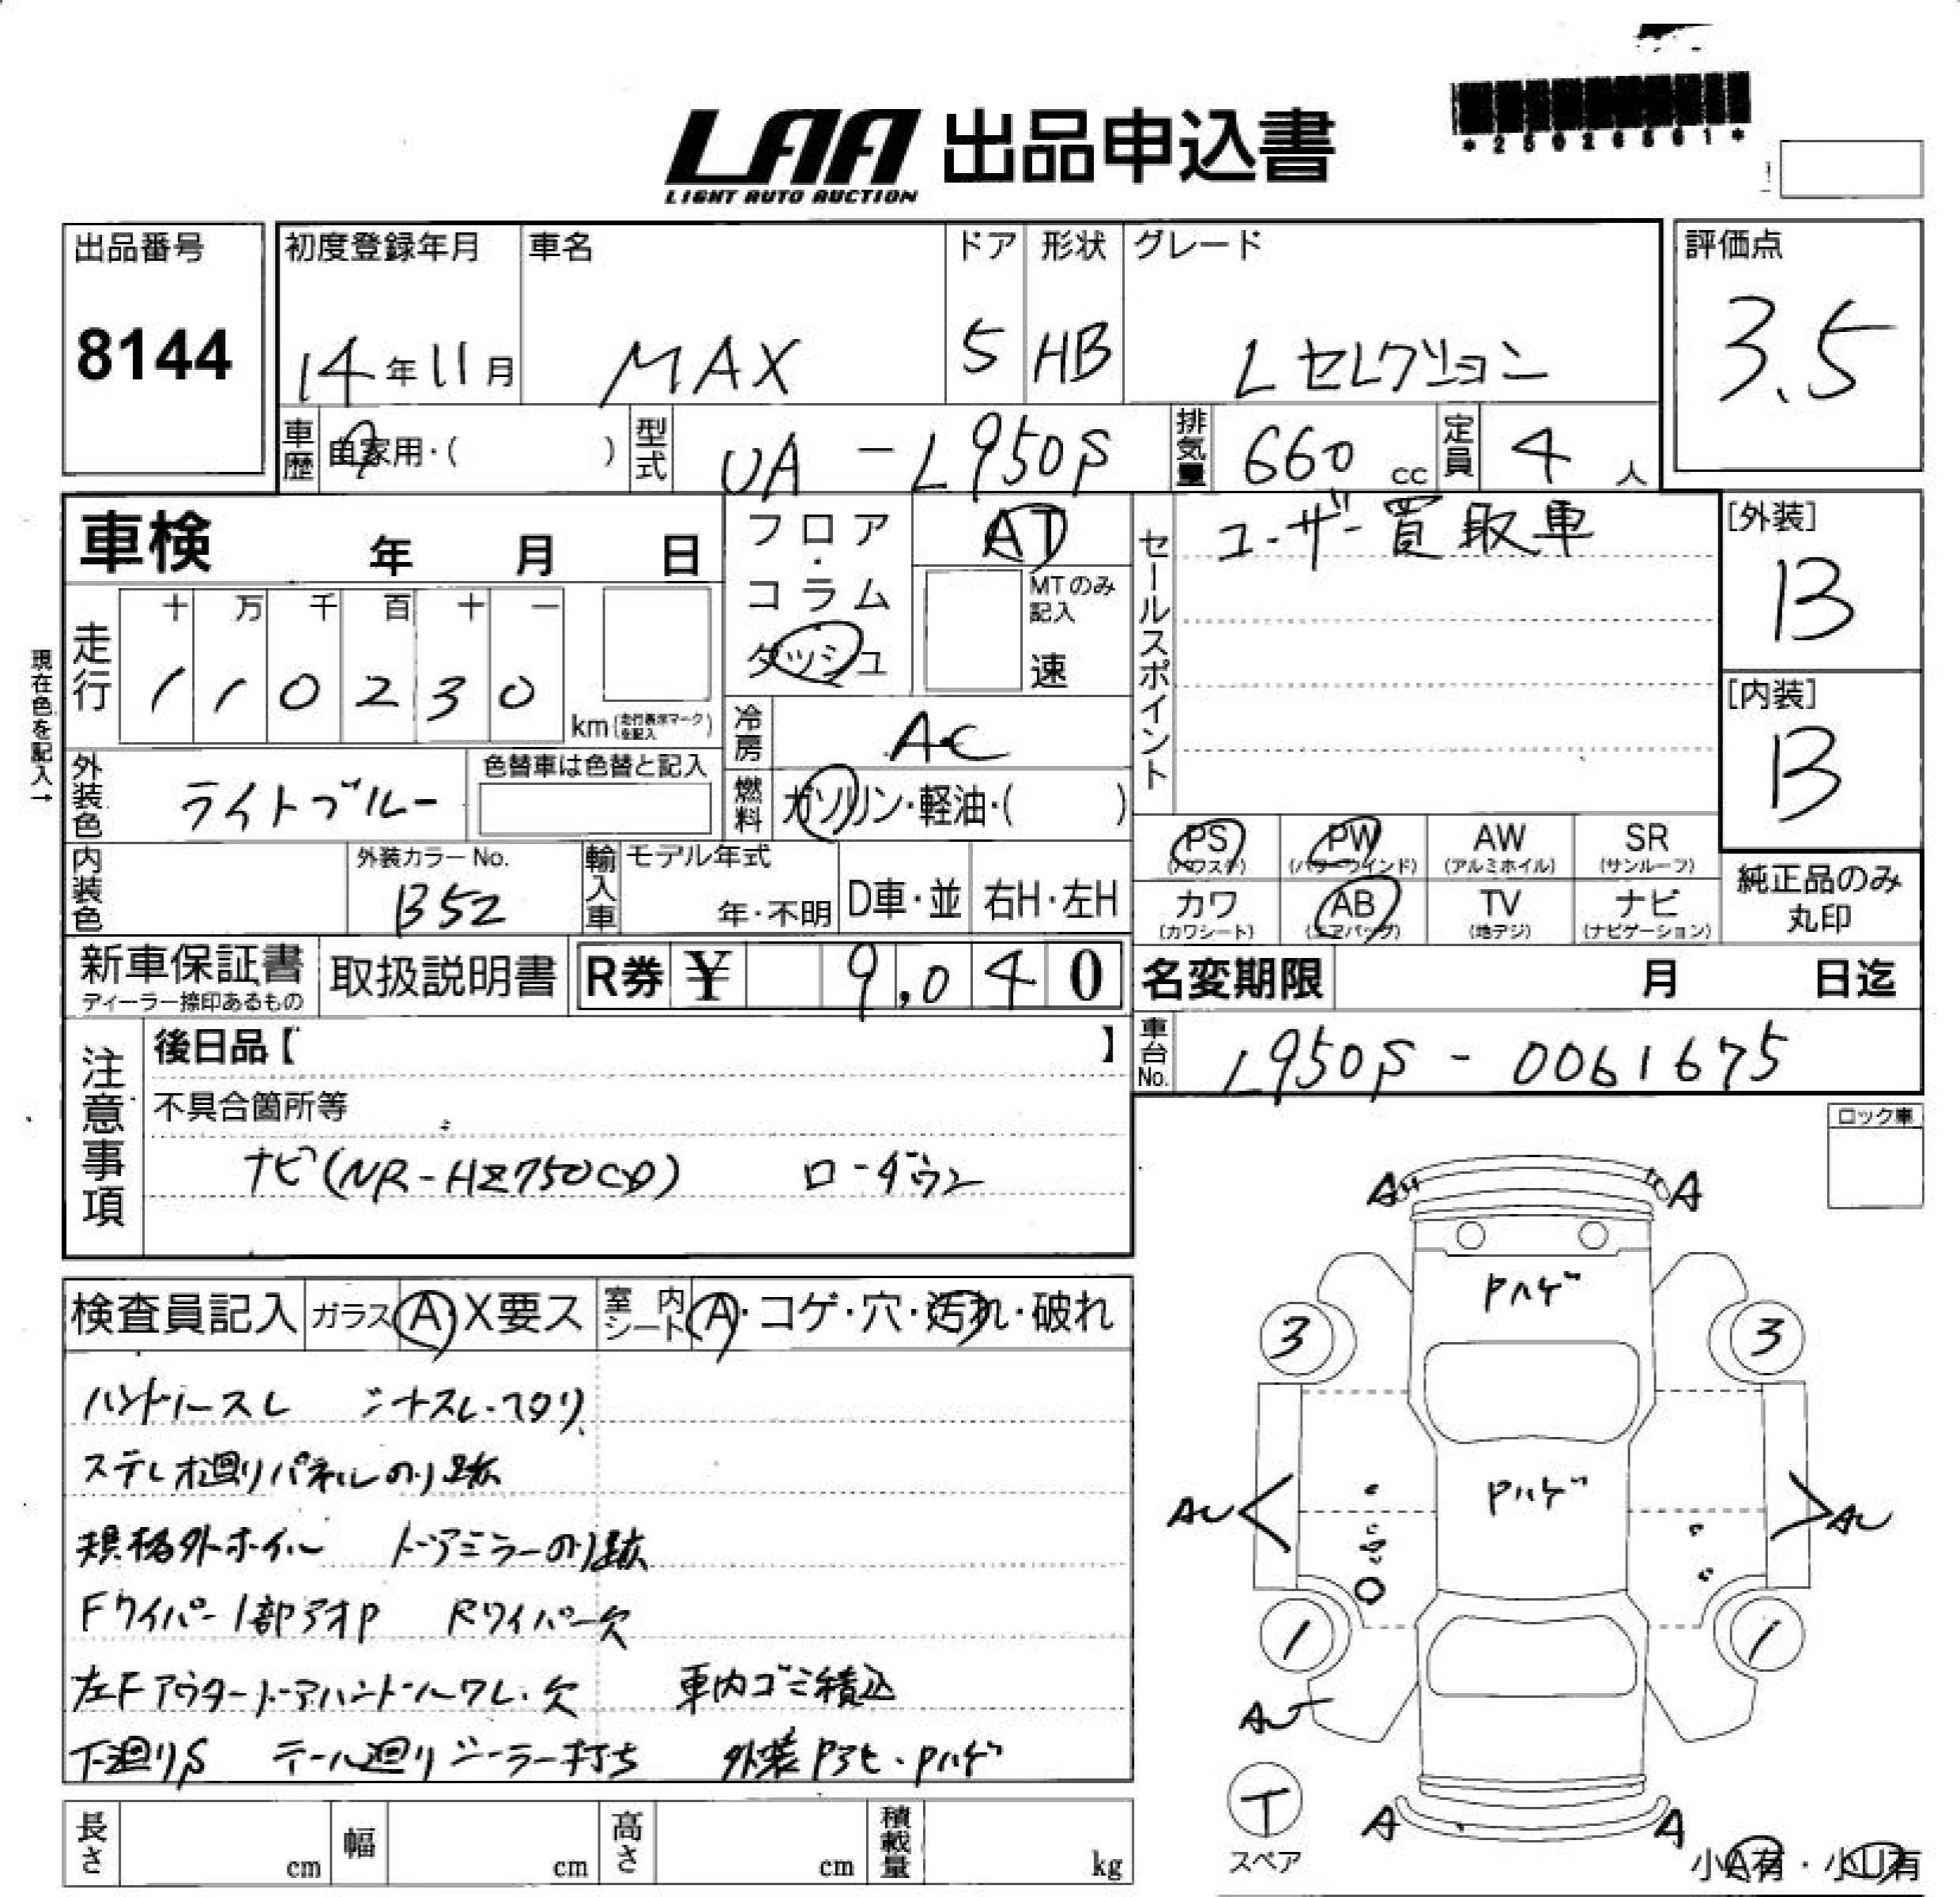 LAA 出品申込書
LIGHT AUTO AUCTION
*25026561*
出品番号
8144
初度登録年月
14年11月
車名
MAX
ドア
5
形状
HB
グレード
Lセレクション
評価点
3.5
車歴
自家用・( )
型式
UA-L950S
排気量
660 cc
定員
4 人
車検 年 月 日
フロア・コラム
ダッシュ
AT
MTのみ記入
速
セールスポイント
ユーザー買取車
[外装]
B
[内装]
B
現在色を記入→
走行
十 万 千 百 十 一
1 1 0 2 3 0
km(走行表示マークを記入)
冷房
AC
外装色
ライトブルー
色替車は色替と記入
燃料
ガソリン・軽油・( )
内装色
外装カラーNo.
B52
輸入車
モデル年式
年・不明
D車・並
右H・左H
PS
(パワステ)
PW
(パワーウインド)
AW
(アルミホイル)
SR
(サンルーフ)
カワ
(カワシート)
AB
(エアバッグ)
TV
(地デジ)
ナビ
(ナビゲーション)
純正品のみ
丸印
新車保証書
ディーラー捺印あるもの
取扱説明書
R券 ¥ 9,040
名変期限 月 日迄
注意事項
後日品【 】
車台No.
L950S-0061675
不具合箇所等
ナビ(NR-HZ750CD) ローダウン
ロック車
検査員記入
ガラス A・X要ス
室内シート A・コゲ・穴・汚れ・破れ
ハンドルスレ
ステレオ廻りパネルのり跡
規格外ホイル ドアミラーのり跡
Fワイパー1部アオP Rワイパー欠
左Fアウタードアハンドルワレ・欠 車内ゴミ積込
下廻りS テール廻りシーラー打ち 外装Pアセ・Pハゲ
A A
Pハゲ
3 3
Pハゲ
AU AU
1 1
AU
T
スペア
A A
小A有・小U有
長さ cm
幅 cm
高さ cm
積載量 kg